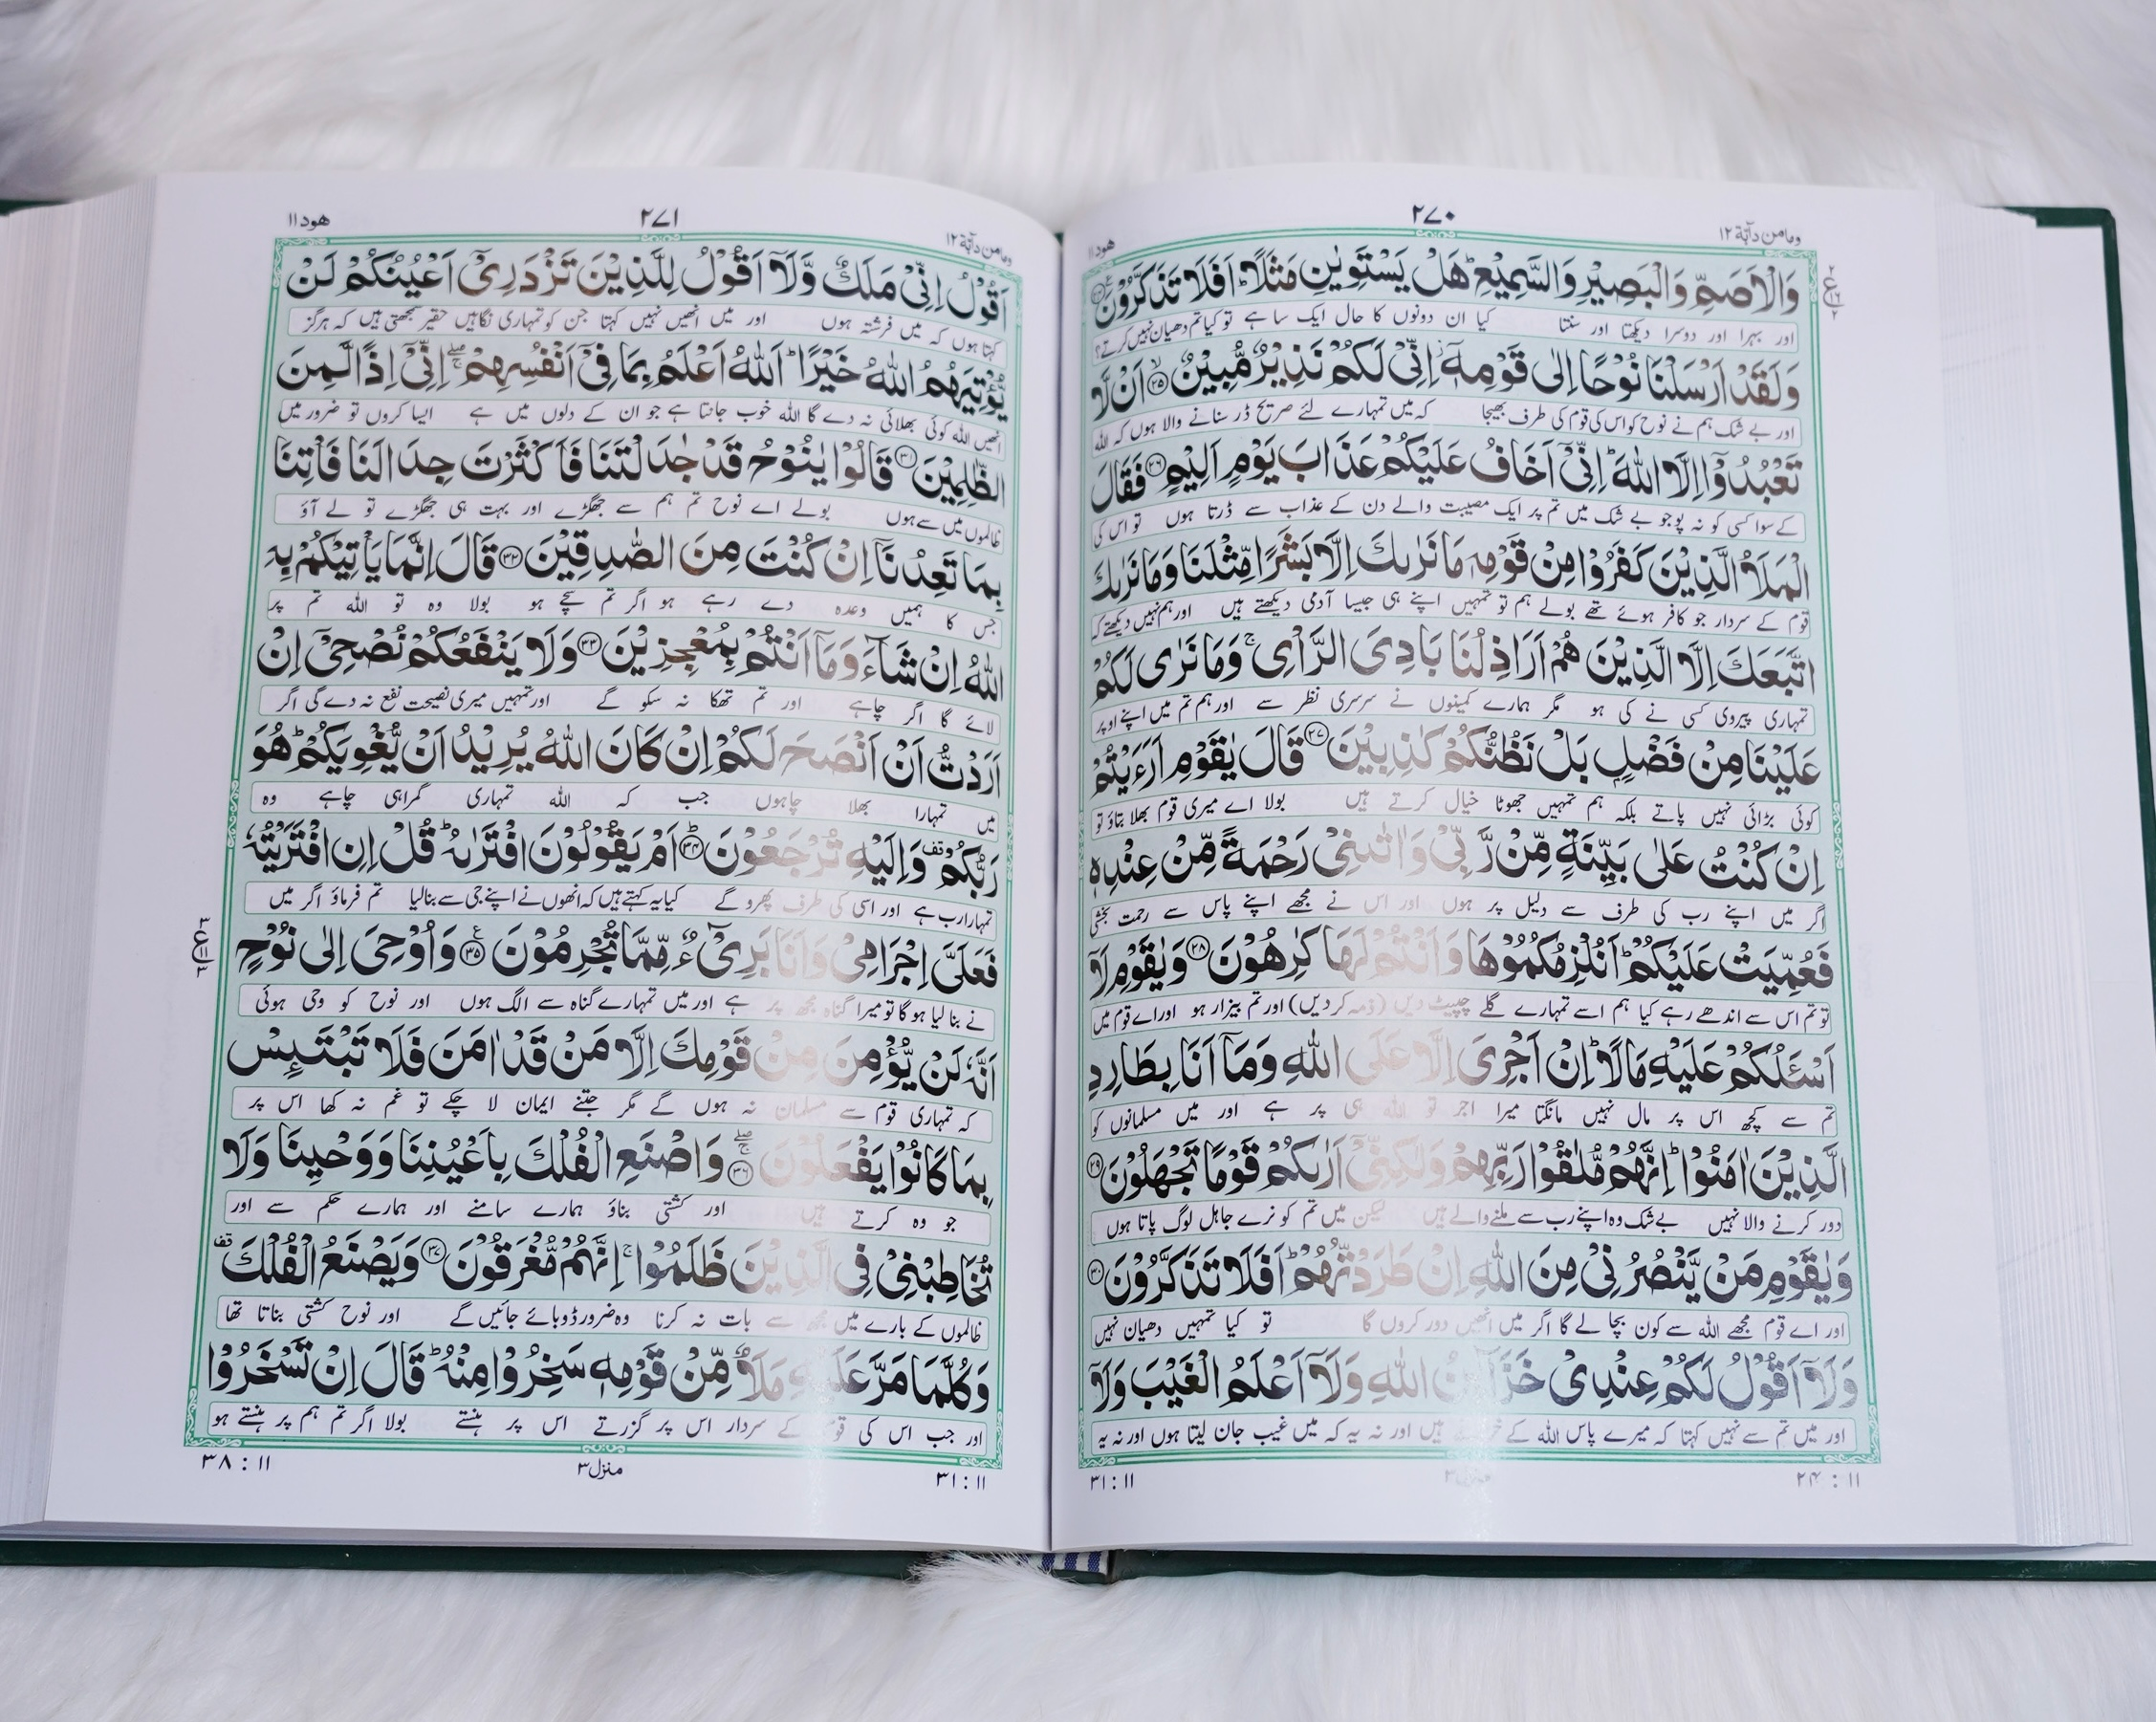 وما من دآبة ۱۲
۲۷۰
هود ۱۱
وَالْاَصَمِّ وَالْبَصِيْرِ وَالسَّمِيْعِ ؕ هَلْ يَسْتَوِيٰنِ مَثَلًا ؕ اَفَلَا تَذَكَّرُوْنَ ۲۴
اور بہرا اور دوسرا دیکھتا اور سنتا کیا ان دونوں کا حال ایک سا ہے تو کیا تم دھیان نہیں کرتے؟
وَلَقَدْ اَرْسَلْنَا نُوْحًا اِلٰى قَوْمِهٖٓ ؗ اِنِّيْ لَكُمْ نَذِيْرٌ مُّبِيْنٌ ۲۵ اَنْ لَّا
اور بے شک ہم نے نوح کو اس کی قوم کی طرف بھیجا کہ میں تمہارے لئے صریح ڈر سنانے والا ہوں کہ اللہ
تَعْبُدُوْۤا اِلَّا اللّٰهَ ؕ اِنِّيْۤ اَخَافُ عَلَيْكُمْ عَذَابَ يَوْمٍ اَلِيْمٍ ۲۶ فَقَالَ
کے سوا کسی کو نہ پوجو بے شک میں تم پر ایک مصیبت والے دن کے عذاب سے ڈرتا ہوں تو اس کی
الْمَلَاُ الَّذِيْنَ كَفَرُوْا مِنْ قَوْمِهٖ مَا نَرٰىكَ اِلَّا بَشَرًا مِّثْلَنَا وَمَا نَرٰىكَ
قوم کے سردار جو کافر ہوئے تھے بولے ہم تو تمہیں اپنے ہی جیسا آدمی دیکھتے ہیں اور ہم نہیں دیکھتے کہ
اتَّبَعَكَ اِلَّا الَّذِيْنَ هُمْ اَرَاذِلُنَا بَادِيَ الرَّاْيِ ۚ وَمَا نَرٰى لَكُمْ
تمہاری پیروی کسی نے کی ہو مگر ہمارے کمینوں نے سرسری نظر سے اور ہم تم میں اپنے اوپر
عَلَيْنَا مِنْ فَضْلٍۭ بَلْ نَظُنُّكُمْ كٰذِبِيْنَ ۲۷ قَالَ يٰقَوْمِ اَرَءَيْتُمْ
کوئی بڑائی نہیں پاتے بلکہ ہم تمہیں جھوٹا خیال کرتے ہیں بولا اے میری قوم بھلا بتاؤ تو
اِنْ كُنْتُ عَلٰى بَيِّنَةٍ مِّنْ رَّبِّيْ وَاٰتٰىنِيْ رَحْمَةً مِّنْ عِنْدِهٖ
اگر میں اپنے رب کی طرف سے دلیل پر ہوں اور اس نے مجھے اپنے پاس سے رحمت بخشی
فَعُمِّيَتْ عَلَيْكُمْ ؕ اَنُلْزِمُكُمُوْهَا وَاَنْتُمْ لَهَا كٰرِهُوْنَ ۲۸ وَيٰقَوْمِ لَاۤ
تو تم اس سے اندھے رہے کیا ہم اسے تمہارے گلے چپیٹ دیں (ذمہ کر دیں) اور تم بیزار ہو اور اے قوم میں
اَسْـَٔلُكُمْ عَلَيْهِ مَالًا ؕ اِنْ اَجْرِيَ اِلَّا عَلَى اللّٰهِ وَمَاۤ اَنَا بِطَارِدِ
تم سے کچھ اس پر مال نہیں مانگتا میرا اجر تو اللہ ہی پر ہے اور میں مسلمانوں کو
الَّذِيْنَ اٰمَنُوْا ؕ اِنَّهُمْ مُّلٰقُوْا رَبِّهِمْ وَلٰكِنِّيْۤ اَرٰىكُمْ قَوْمًا تَجْهَلُوْنَ ۲۹
دور کرنے والا نہیں بے شک وہ اپنے رب سے ملنے والے ہیں لیکن میں تم کو نرے جاہل لوگ پاتا ہوں
وَيٰقَوْمِ مَنْ يَّنْصُرُنِيْ مِنَ اللّٰهِ اِنْ طَرَدْتُّهُمْ ؕ اَفَلَا تَذَكَّرُوْنَ ۳۰
اور اے قوم مجھے اللہ سے کون بچا لے گا اگر میں انھیں دور کروں گا تو کیا تمہیں دھیان نہیں
وَلَاۤ اَقُوْلُ لَكُمْ عِنْدِيْ خَزَآئِنُ اللّٰهِ وَلَاۤ اَعْلَمُ الْغَيْبَ وَلَاۤ
اور میں تم سے نہیں کہتا کہ میرے پاس اللہ کے ہیں اور نہ یہ کہ میں غیب جان لیتا ہوں اور نہ یہ
۱۱ : ۲۴
منزل ۳
۱۱ : ۳۱
وما من دآبة ۱۲
۲۷۱
هود ۱۱
اَقُوْلُ اِنِّيْ مَلَكٌ وَّلَاۤ اَقُوْلُ لِلَّذِيْنَ تَزْدَرِيْۤ اَعْيُنُكُمْ لَنْ
کہتا ہوں کہ میں فرشتہ ہوں اور میں انھیں نہیں کہتا جن کو تمہاری نگاہیں حقیر سمجھتی ہیں کہ ہرگز
يُّؤْتِيَهُمُ اللّٰهُ خَيْرًا ؕ اَللّٰهُ اَعْلَمُ بِمَا فِيْۤ اَنْفُسِهِمْ ۖۚ اِنِّيْۤ اِذًا لَّمِنَ
انھیں اللہ کوئی بھلائی نہ دے گا اللہ خوب جانتا ہے جو ان کے دلوں میں ہے ایسا کروں تو ضرور میں
الظّٰلِمِيْنَ ۳۱ قَالُوْا يٰنُوْحُ قَدْ جٰدَلْتَنَا فَاَكْثَرْتَ جِدَالَنَا فَاْتِنَا
ظالموں میں سے ہوں بولے اے نوح تم ہم سے جھگڑے اور بہت ہی جھگڑے تو لے آؤ
بِمَا تَعِدُنَاۤ اِنْ كُنْتَ مِنَ الصّٰدِقِيْنَ ۳۲ قَالَ اِنَّمَا يَاْتِيْكُمْ بِهِ
جس کا ہمیں وعدہ دے رہے ہو اگر تم سچے ہو بولا وہ تو اللہ تم پر
اللّٰهُ اِنْ شَآءَ وَمَاۤ اَنْتُمْ بِمُعْجِزِيْنَ ۳۳ وَلَا يَنْفَعُكُمْ نُصْحِيْۤ اِنْ
لائے گا اگر چاہے اور تم تھکا نہ سکو گے اور تمہیں میری نصیحت نفع نہ دے گی اگر
اَرَدْتُّ اَنْ اَنْصَحَ لَكُمْ اِنْ كَانَ اللّٰهُ يُرِيْدُ اَنْ يُّغْوِيَكُمْ ؕ هُوَ
میں تمہارا بھلا چاہوں جب کہ اللہ تمہاری گمراہی چاہے وہ
رَبُّكُمْ قف وَاِلَيْهِ تُرْجَعُوْنَ ۳۴ اَمْ يَقُوْلُوْنَ افْتَرٰىهُ ؕ قُلْ اِنِ افْتَرَيْتُهٗ
تمہارا رب ہے اور اسی کی طرف پھرو گے کیا یہ کہتے ہیں کہ انھوں نے اپنے جی سے بنا لیا تم فرماؤ اگر میں
فَعَلَيَّ اِجْرَامِيْ وَاَنَا بَرِيْٓءٌ مِّمَّا تُجْرِمُوْنَ ۳۵ وَاُوْحِيَ اِلٰى نُوْحٍ
نے بنا لیا ہو گا تو میرا گناہ مجھ پر ہے اور میں تمہارے گناہ سے الگ ہوں اور نوح کو وحی ہوئی
اَنَّهٗ لَنْ يُّؤْمِنَ مِنْ قَوْمِكَ اِلَّا مَنْ قَدْ اٰمَنَ فَلَا تَبْتَىِٕسْ
کہ تمہاری قوم سے مسلمان نہ ہوں گے مگر جتنے ایمان لا چکے تو غم نہ کھا اس پر
بِمَا كَانُوْا يَفْعَلُوْنَ ۳۶ وَاصْنَعِ الْفُلْكَ بِاَعْيُنِنَا وَوَحْيِنَا وَلَا
جو وہ کرتے ہیں اور کشتی بناؤ ہمارے سامنے اور ہمارے حکم سے اور
تُخَاطِبْنِيْ فِي الَّذِيْنَ ظَلَمُوْا ۚ اِنَّهُمْ مُّغْرَقُوْنَ ۳۷ وَيَصْنَعُ الْفُلْكَ قف
ظالموں کے بارے میں مجھ سے بات نہ کرنا وہ ضرور ڈوبائے جائیں گے اور نوح کشتی بناتا تھا
وَكُلَّمَا مَرَّ عَلَيْهِ مَلَاٌ مِّنْ قَوْمِهٖ سَخِرُوْا مِنْهُ ؕ قَالَ اِنْ تَسْخَرُوْا
اور جب اس کی قوم کے سردار اس پر گزرتے اس پر ہنستے بولا اگر تم ہم پر ہنستے ہو
۱۱ : ۳۱
منزل ۳
۱۱ : ۳۸